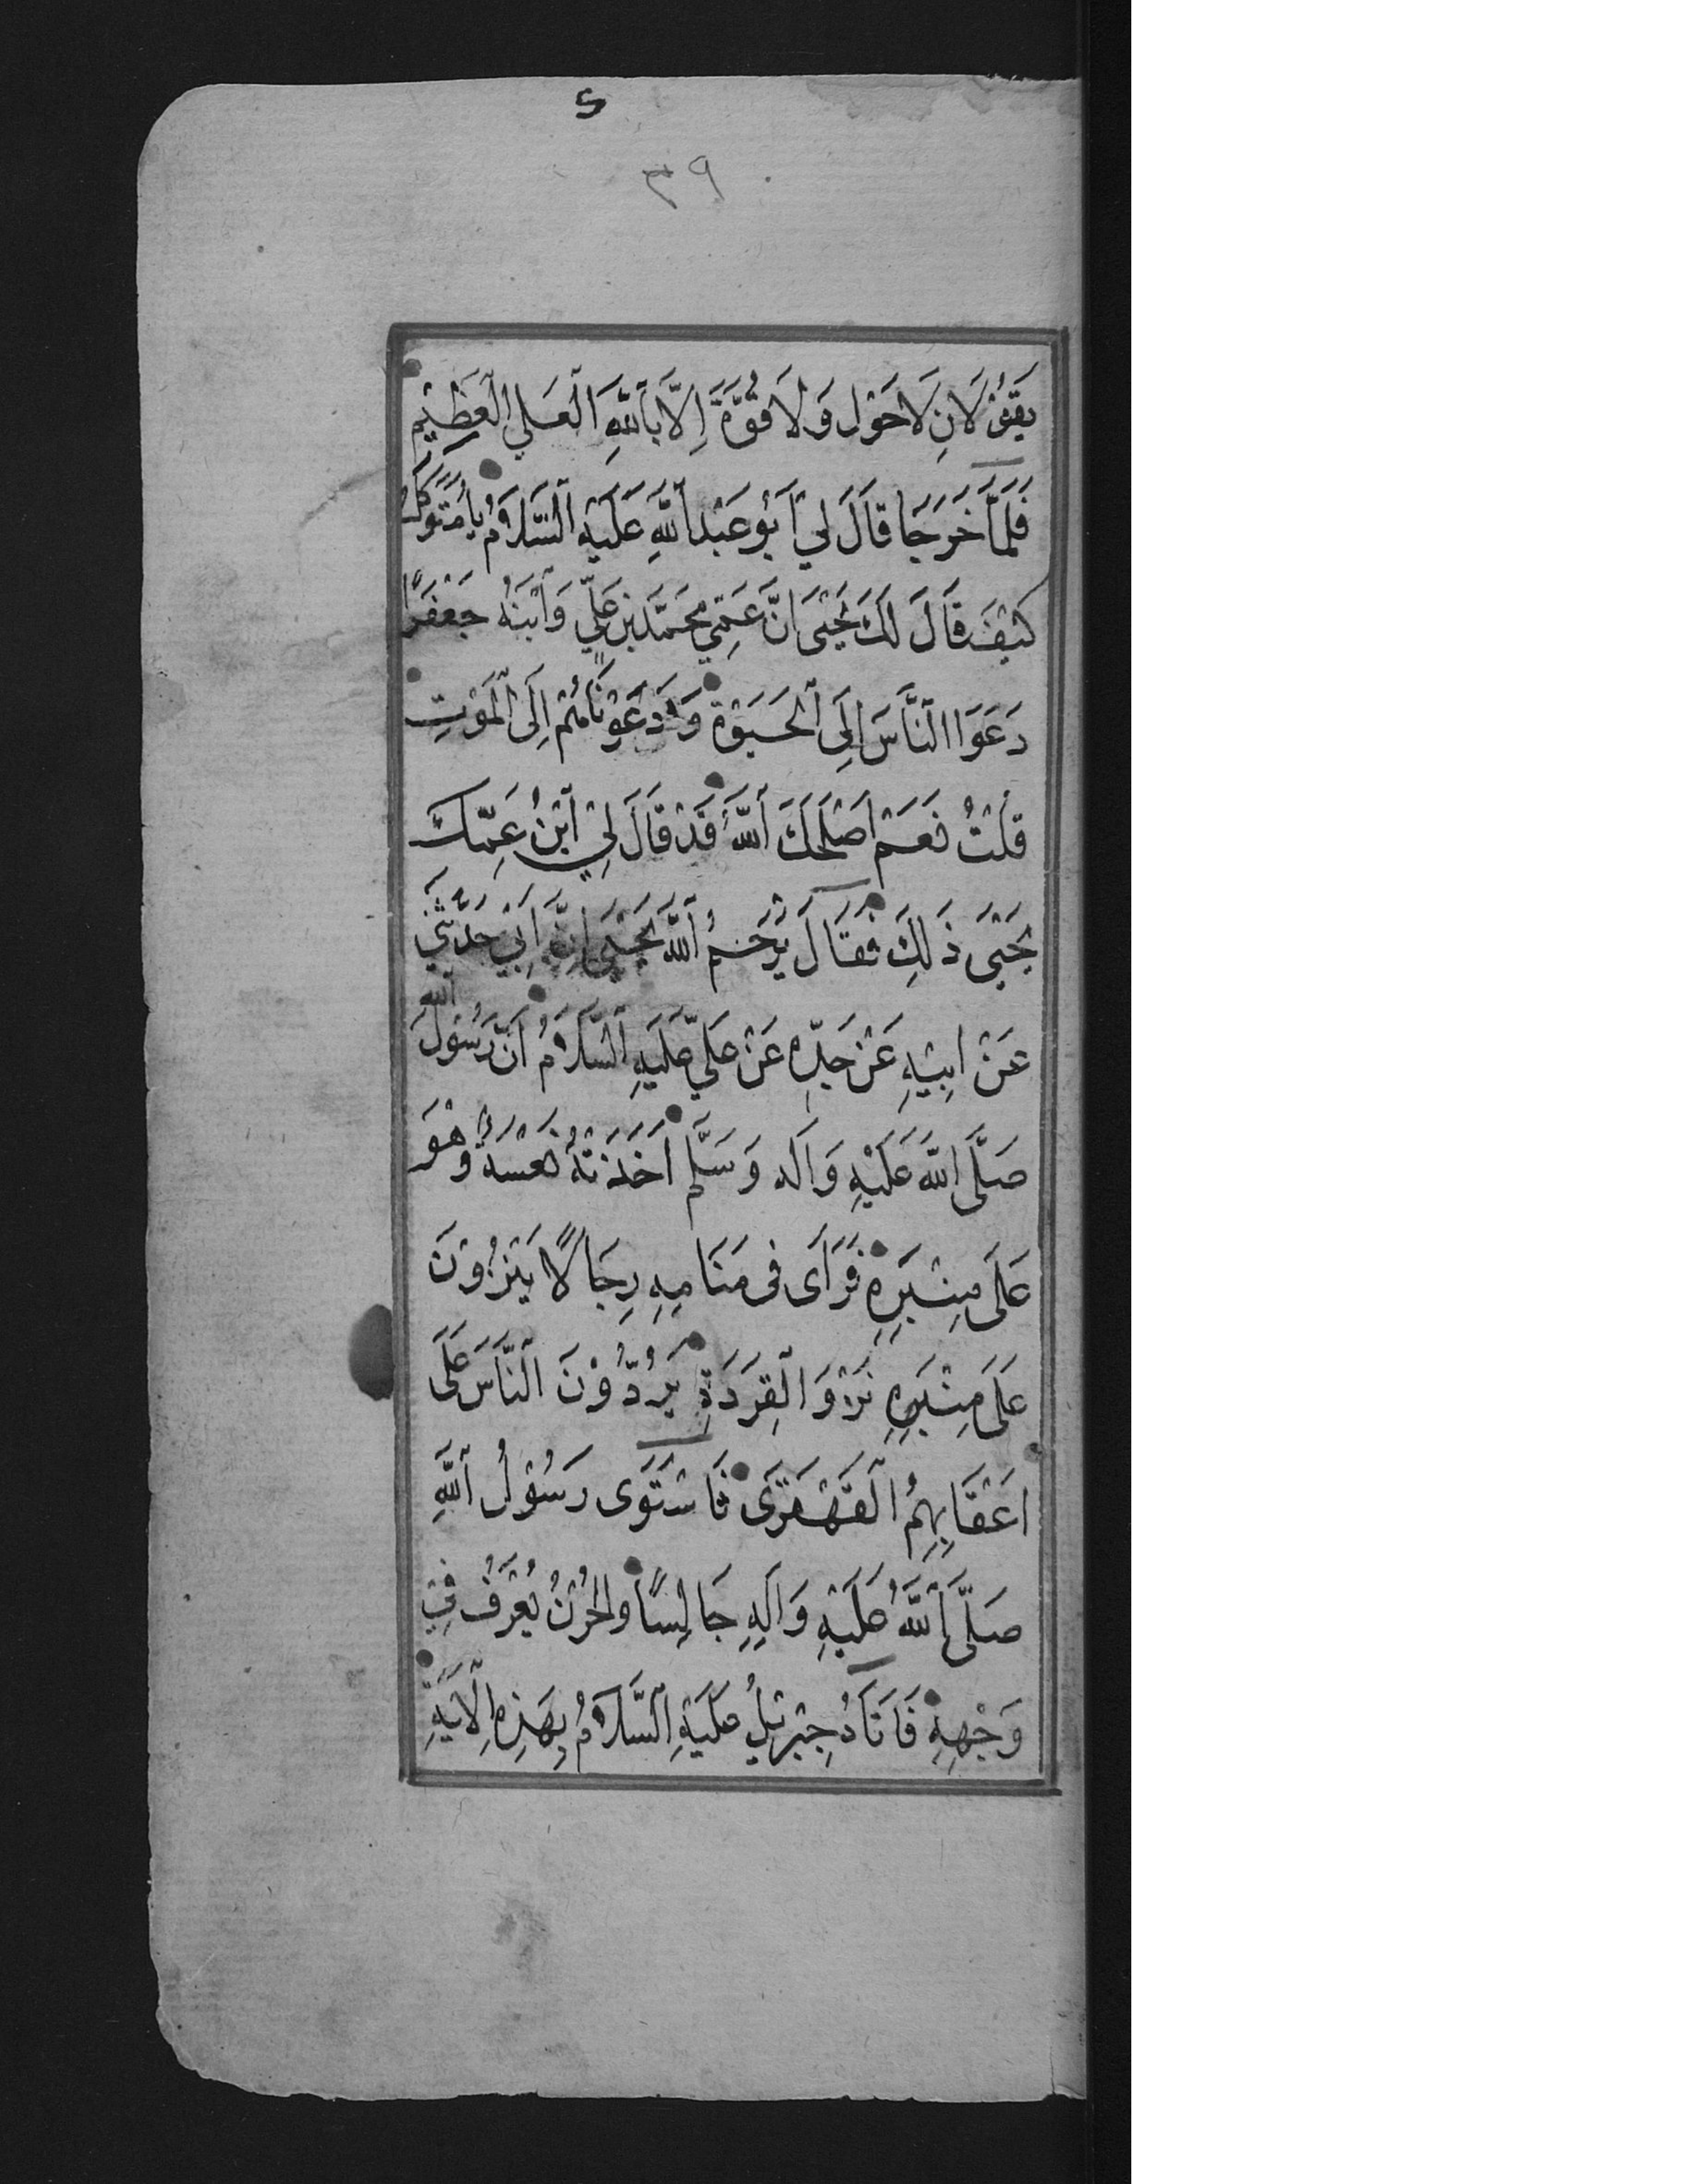 ۵
۳۹
يَقُولَانِ لَاحَوْلَ وَلَا قُوَّةَ اِلَّا بِاللّٰهِ الْعَلِيِّ الْعَظِيْمِ
فَلَمَّا خَرَجَا قَالَ لِيْ اَبُوْ عَبْدِ اللّٰهِ عَلَيْهِ السَّلَامُ يَا مُتَوَكِّلُ
كَيْفَ قَالَ لَكَ يَحْيَى اِنَّ عَمِّي مُحَمَّدَ بْنَ عَلِيٍّ وَابْنَهُ جَعْفَرًا
دَعَوَا النَّاسَ اِلَى الْحَيٰوةِ وَدَعَوْنَاهُمْ اِلَى الْمَوْتِ
قُلْتُ نَعَمْ اَصْلَحَكَ اللّٰهُ قَدْ قَالَ لِيْ ابْنُ عَمِّكَ
يَحْيَى ذَلِكَ فَقَالَ يَرْحَمُ اللّٰهُ يَحْيَى اِنَّ اَبِيْ حَدَّثَنِي
عَنْ اَبِيْهِ عَنْ جَدِّهِ عَنْ عَلِيٍّ عَلَيْهِ السَّلَامُ اَنَّ رَسُوْلَ اللّٰهِ
صَلَّى اللّٰهُ عَلَيْهِ وَاٰلِهِ وَسَلَّم اَخَذَتْهُ نَعْسَةٌ وَهُوَ
عَلَى مِنْبَرِهِ فَرَاَى فِى مَنَامِهِ رِجَالًا يَنْزُوْنَ
عَلَى مِنْبَرِهِ نَزْوَ الْقِرَدَةِ يَرُدُّوْنَ النَّاسَ عَلَى
اَعْقَابِهِمُ الْقَهْقَرَى فَاسْتَوَى رَسُوْلُ اللّٰهِ
صَلَّى اللّٰهُ عَلَيْهِ وَاٰلِهِ جَالِسًا وَالْحُزْنُ يُعْرَفُ فِيْ
وَجْهِهِ فَاَتَاهُ جِبْرَئِيْلُ عَلَيْهِ السَّلَامُ بِهَذِهِ الْاٰيَةِ